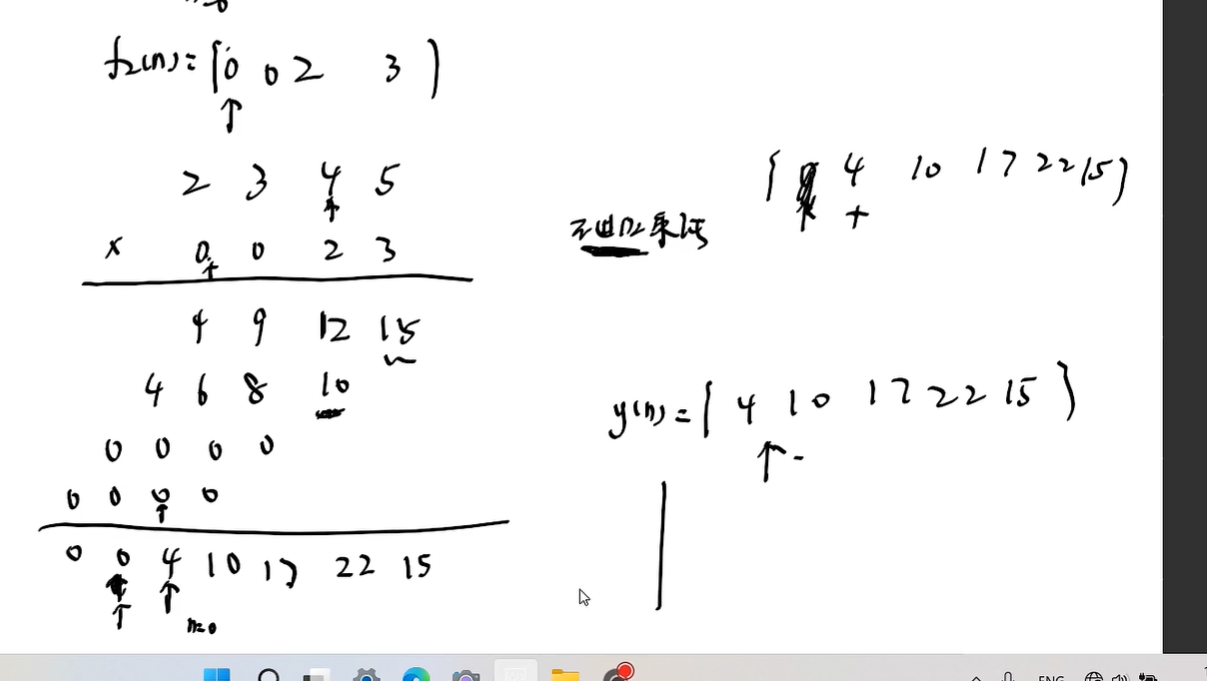 f₂(n)={0 0 2 3}
↑
2 3 4 5
↑
× 0 0 2 3
↑
4 9 12 15
4 6 8 10
0 0 0 0
0 0 0 0
↑
0 0 4 10 17 22 15
↑ ↑
n=0
{ 4 10 17 22 15}
不进位乘法
y(n)={ 4 10 17 22 15 }
↑ -
ENG